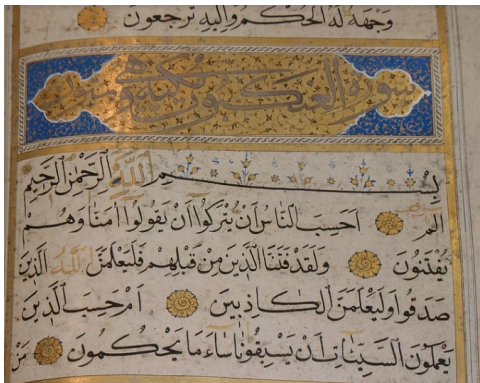 وَجْهَهُ لَهُ الْحُكْمُ وَاِلَيْهِ تُرْجَعُونَ
سورة العنكبوت مكية وهي
بِسْمِ اللَّهِ الرَّحْمٰنِ الرَّحِيمِ
الم اَحَسِبَ النَّاسُ اَنْ يُتْرَكُوا اَنْ يَقُولُوا اٰمَنَّا وَهُمْ
يُفْتَنُونَ وَلَقَدْ فَتَنَّا الَّذِينَ مِنْ قَبْلِهِمْ فَلَيَعْلَمَنَّ اللَّهُ الَّذِينَ
صَدَقُوا وَلَيَعْلَمَنَّ الْكَاذِبِينَ اَمْ حَسِبَ الَّذِينَ
يَعْمَلُونَ السَّيِّئَاتِ اَنْ يَسْبِقُونَا سَاءَ مَا يَحْكُمُونَ مَنْ